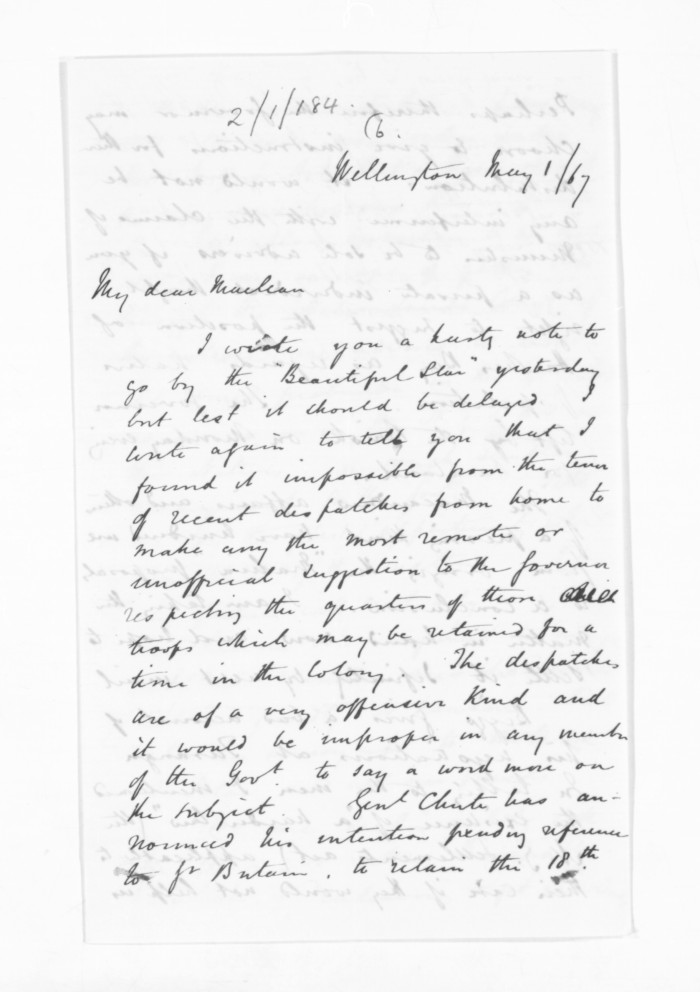 2/1/184.
6.
Wellington May 1/67
My dear Maclean
I wrote you a hasty note to
go by the "Beautiful Star" yesterday
but lest it should be delayed I
write again to tell you that I
found it impossible from the tenor
of recent despatches from home to
make any the most remote or
unofficial suggestion to the Governor
respecting the quarters of those
troops which may be retained for a
time in the Colony. The despatches
are of a very offensive kind and
it would be improper in any member
of the Govt. to say a word more on
the subject. Genl Chute has an-
nounced his intention pending reference
to Gt Britain, to retain the 18th